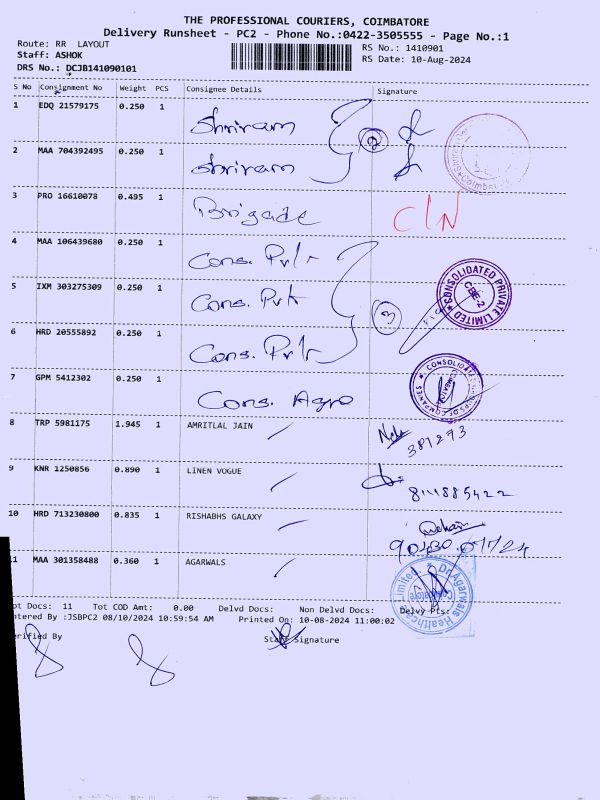 THE PROFESSIONAL COURIERS, COIMBATORE
Delivery Runsheet - PC2 - Phone No.:0422-3505555 - Page No.:1
Route: RR LAYOUT
RS No.: 1410901
Staff: ASHOK
RS Date: 10-Aug-2024
DRS No.: DCJB141090101
S No Consignment No Weight PCS Consignee Details Signature
1 EDQ 21579175 0.250 1 Shriram
2 MAA 704392495 0.250 1 Shriram
2
3 PRO 16610078 0.495 1 Brigade C/N
4 MAA 106439680 0.250 1 Cons. Pvt
5 IXM 303275309 0.250 1 Cons. Pvt
3
CONSOLIDATED PRIVATE LIMITED
CBE-2
6 HRD 20555892 0.250 1 Cons. Pvt
7 GPM 5412302 0.250 1 Cons. Agro
8 TRP 5981175 1.945 1 AMRITLAL JAIN
387293
9 KNR 1250856 0.890 1 LINEN VOGUE
8111885422
10 HRD 713230800 0.835 1 RISHABHS GALAXY
11 MAA 301358488 0.360 1 AGARWALS
Dr.Agarwals Healthcare Limited
Coimbatore
ot Docs: 11 Tot COD Amt: 0.00 Delvd Docs: Non Delvd Docs: Delvy Pts:
ntered By :JSBPC2 08/10/2024 10:59:54 AM Printed On: 10-08-2024 11:00:02
erified By Staff Signature